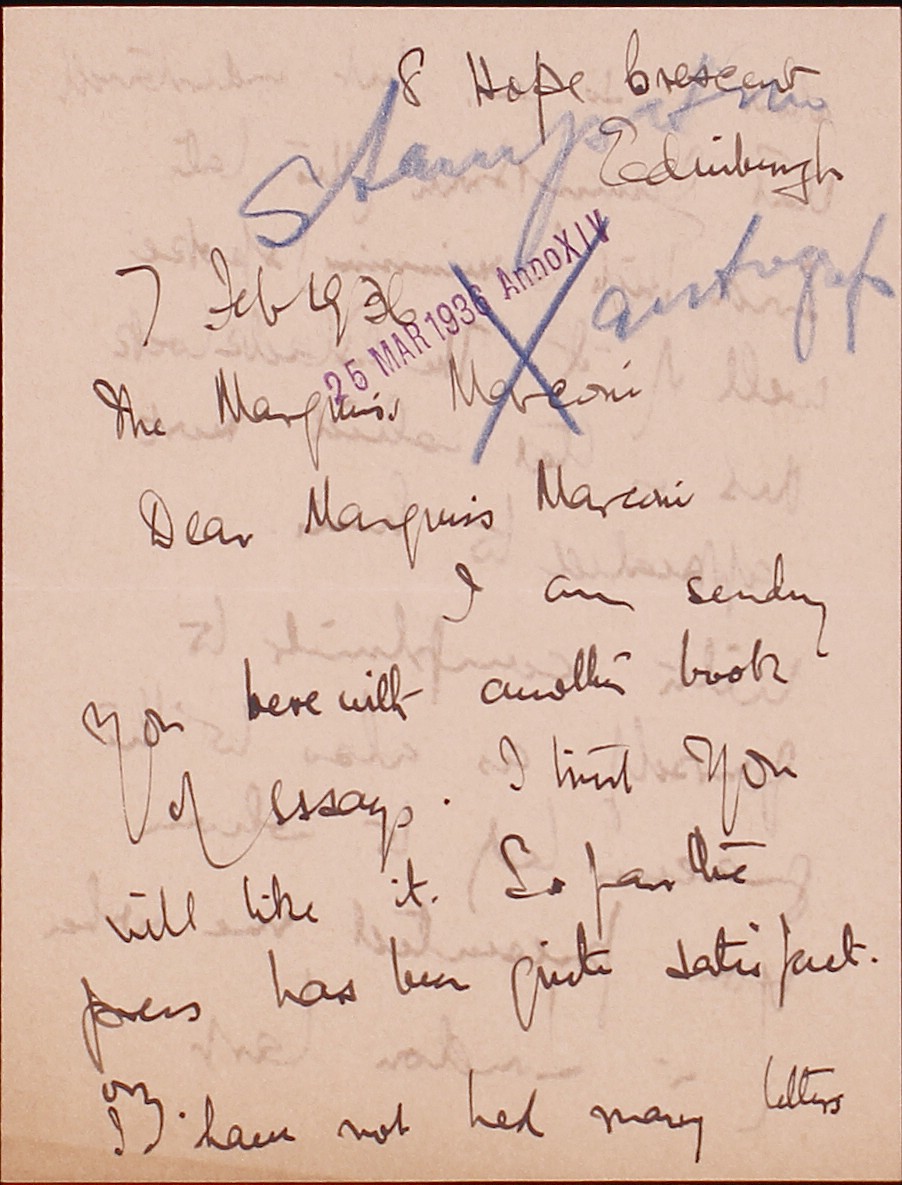 8 Hope Crescent
Edinburgh
Stamp
autogr
7 Feb 1936
25 MAR 1936 Anno XIV
The Marquis Marconi
Dear Marquis Marconi
I am sending
you herewith another book
of essays. I trust you
will like it. So far the
press has been quite satisfact.
ory. I have not had many letters